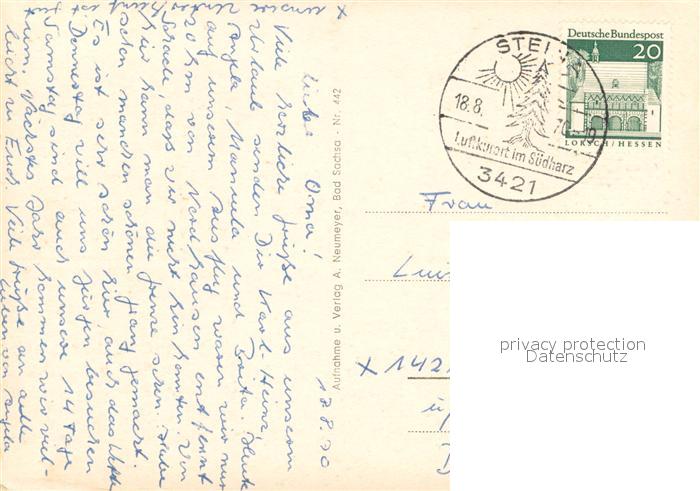 18.8.70
Liebe Oma!
Viele herzliche Grüße aus unserem
Urlaub senden Dir Karl-Heinz,
Angela, Manuela und Heute
auf unserem Ausflug waren wir nur
20 km von Nordhausen entfernt
Schade, daß wir nicht hin konnten. Von
hier kann man die Grenze sehen. Habe
schon manchen schönen Gang gemacht.
Es ist sehr schön hier auch das Wetter
Donnerstag will uns Jürgen besuchen
Samstag sind auch unsere 14 Tage
rum. Nächstes Jahr kommen wir viel-
leicht zu Euch. Viele Grüße an alle
von Angela
Aufnahme u. Verlag A. Neumeyer, Bad Sachsa Nr. 442
STEINA
18.8.
70
Luftkurort im Südharz
3421
Deutsche Bundespost
20
LORSCH/HESSEN
Frau
X 142
privacy protection
Datenschutz